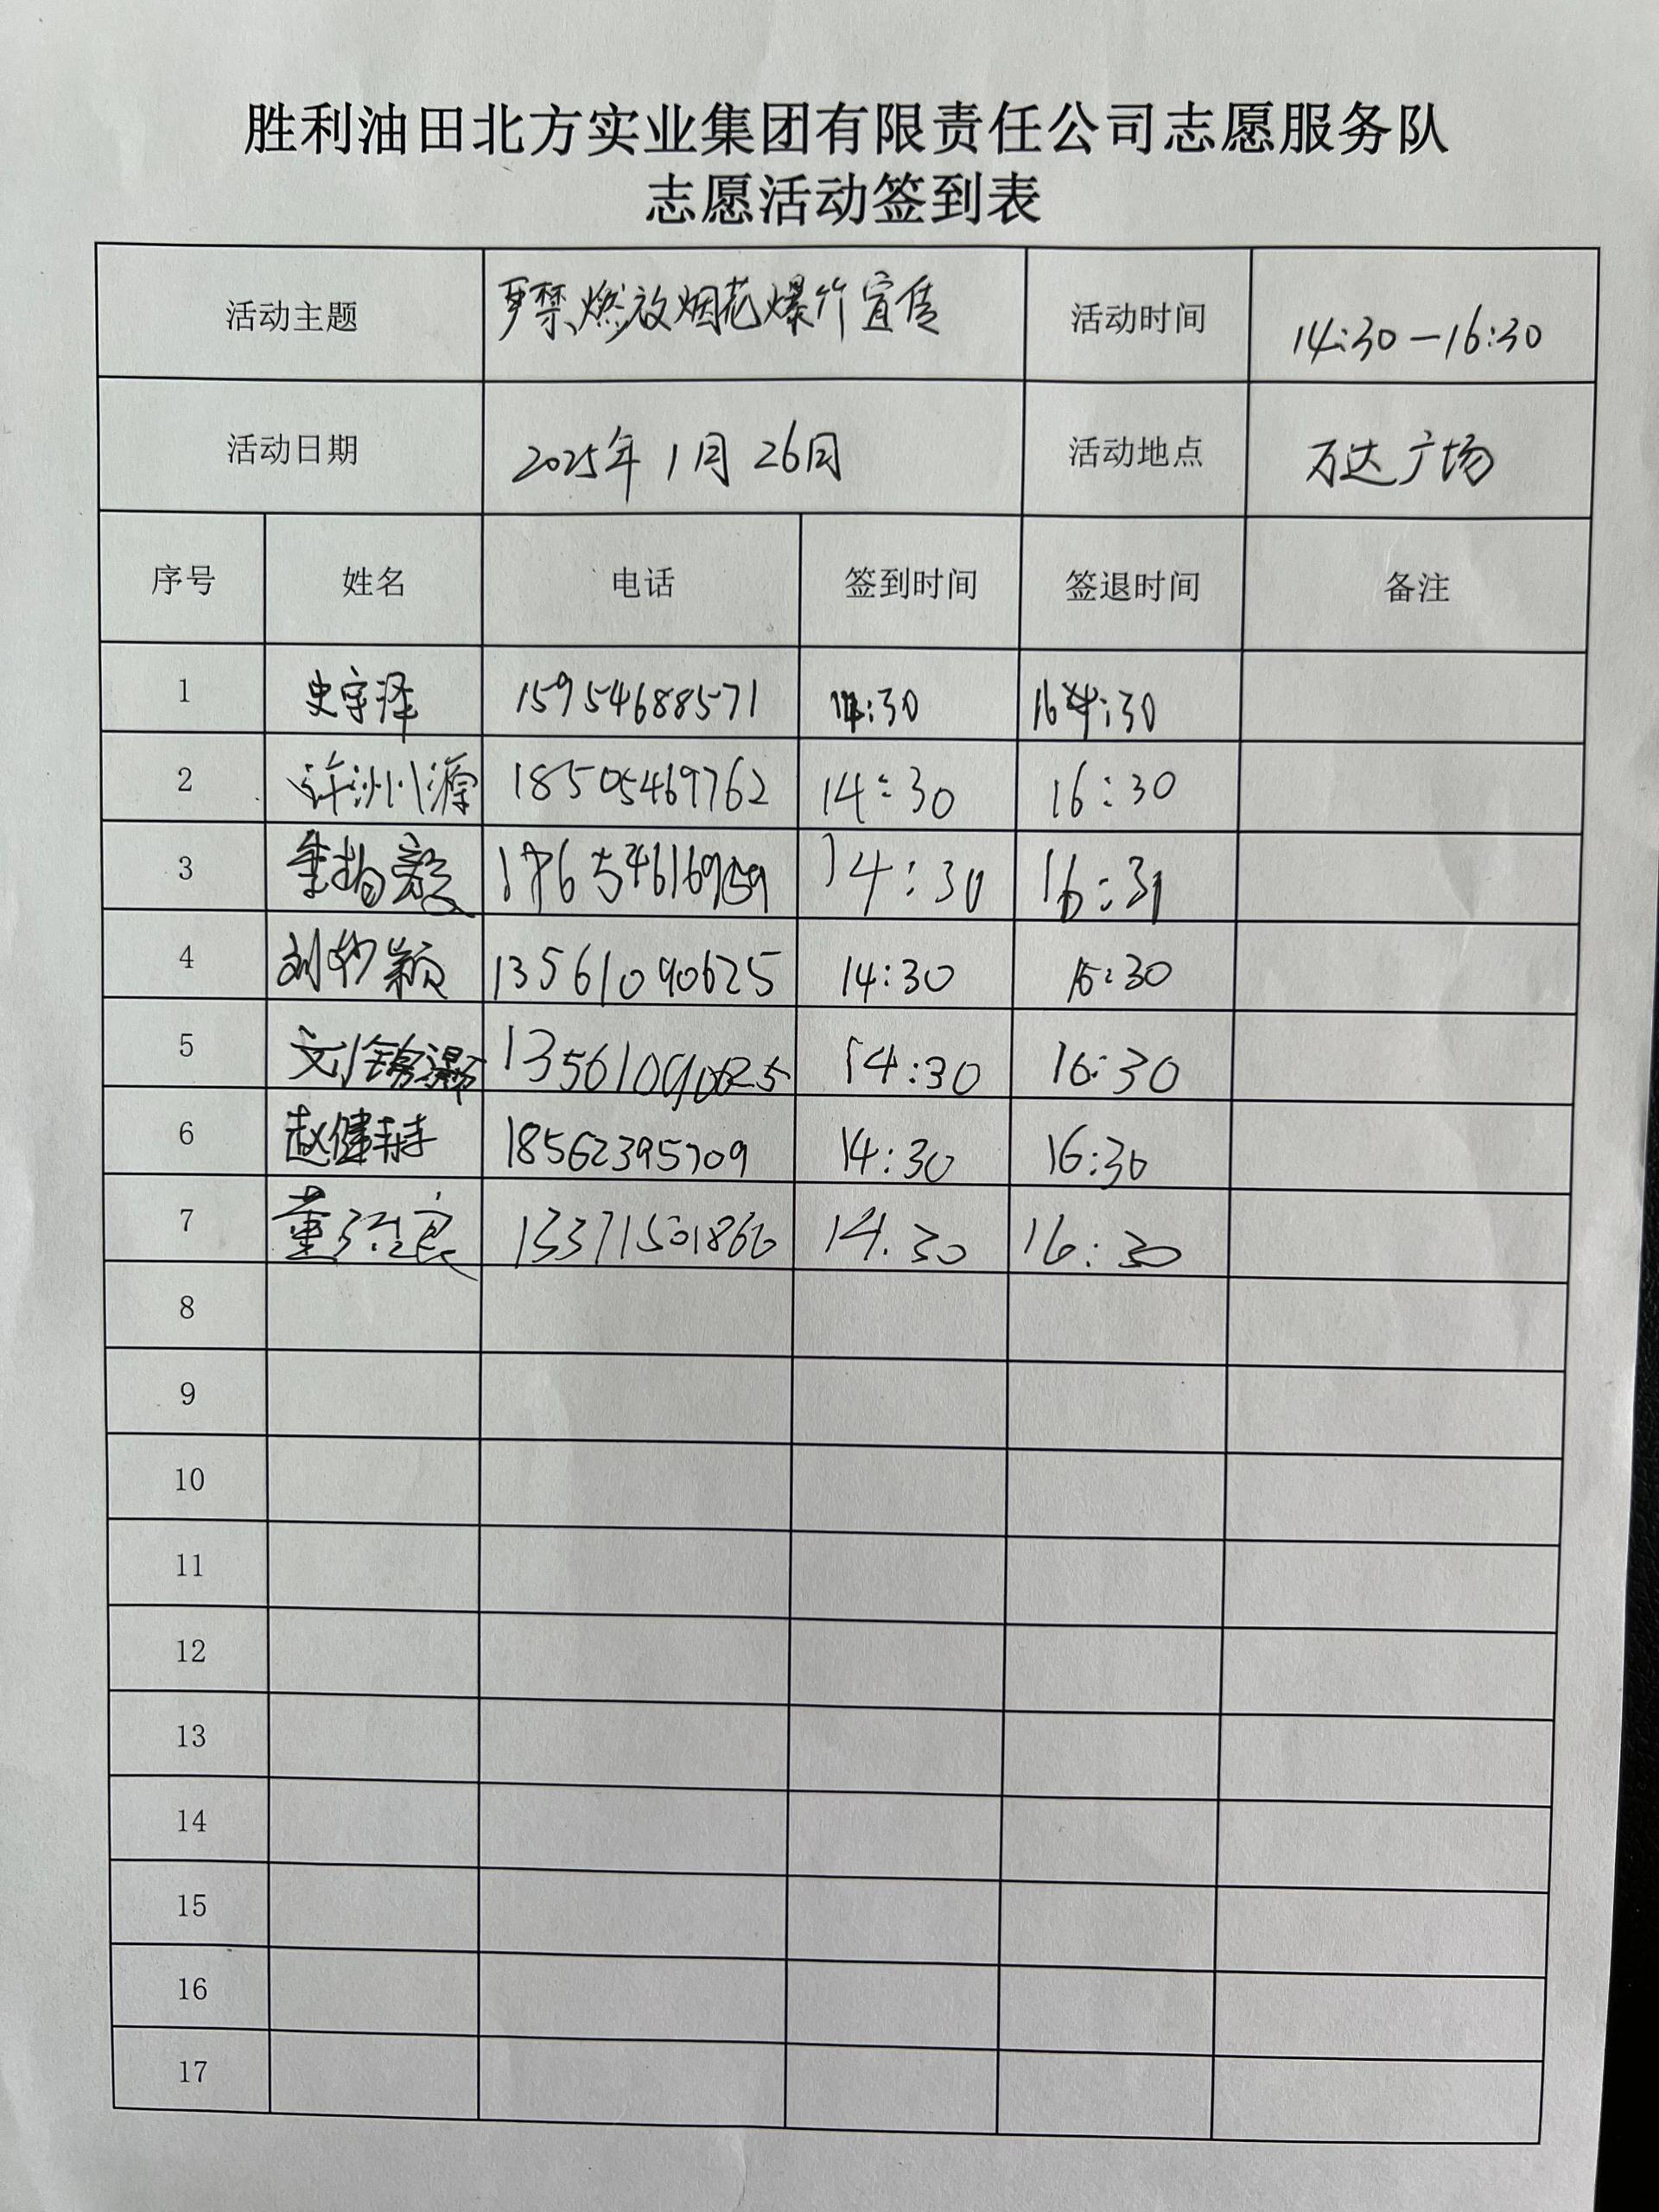 胜利油田北方实业集团有限责任公司志愿服务队
志愿活动签到表
活动主题 严禁燃放烟花爆竹宣传 活动时间 14:30-16:30
活动日期 2025年1月26日 活动地点 万达广场
序号 姓名 电话 签到时间 签退时间 备注
1 史宇泽 15954688571 14:30 16:30
2 许洲源 18505469762 14:30 16:30
3 14:30 16:31
4 13561090625 14:30 16:30
5 刘锦灏 13561090625 14:30 16:30
6 18562395709 14:30 16:30
7 13371501866 14.30 16:30
8
9
10
11
12
13
14
15
16
17